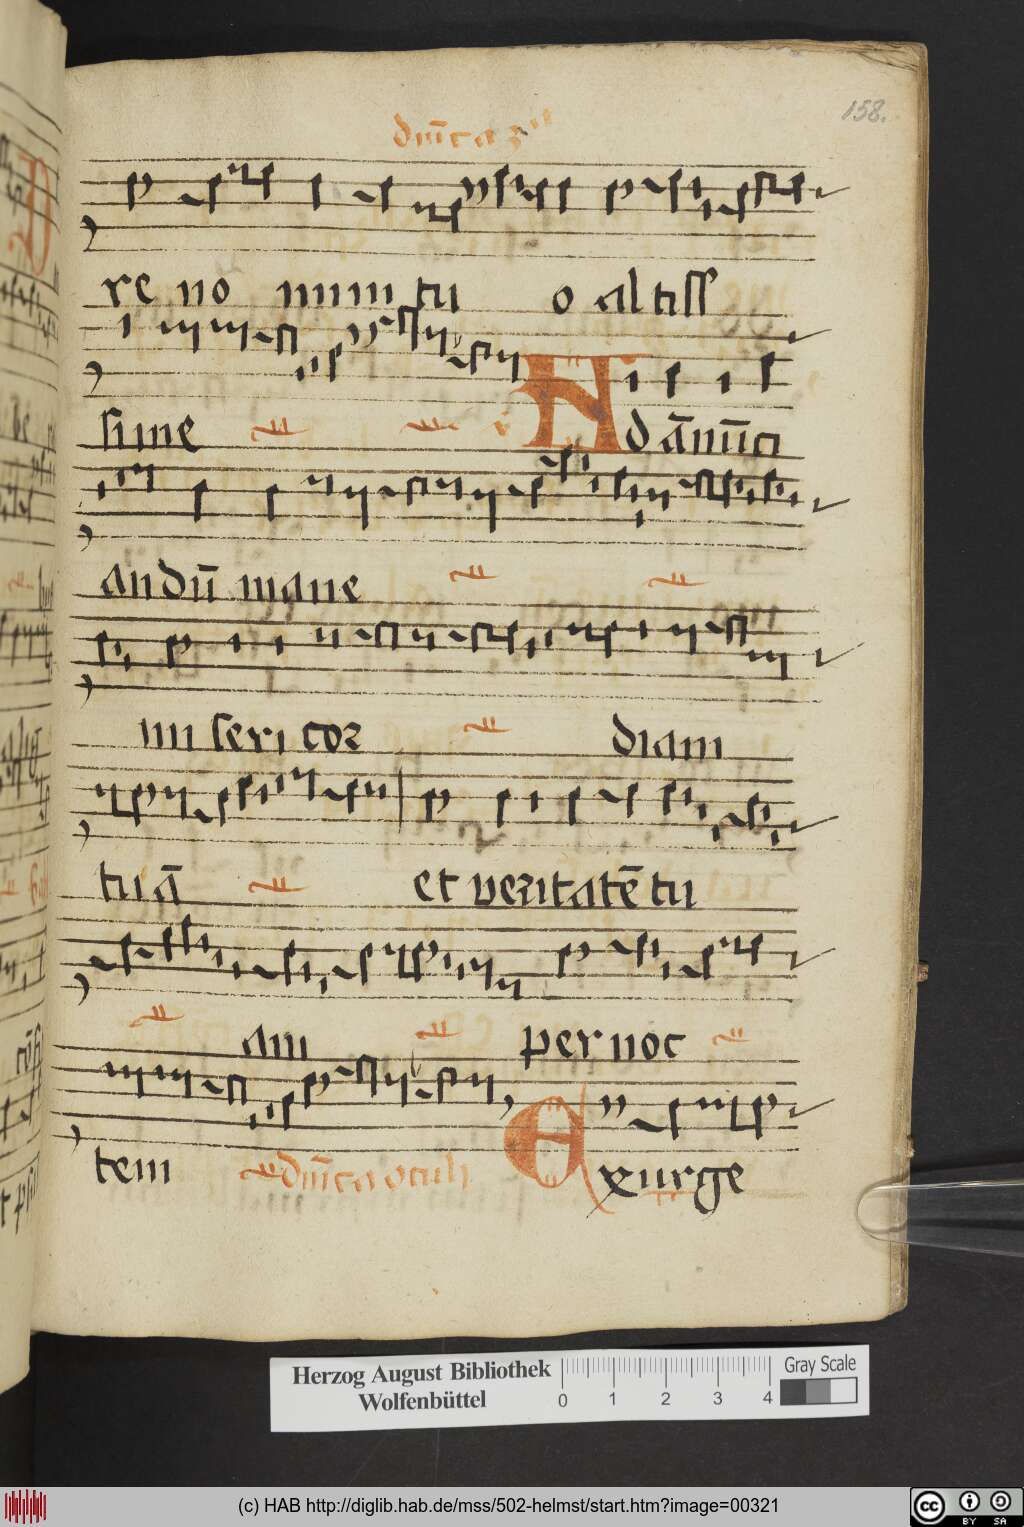 158.
dnī̄ca 3ᵃ
re no mini tu o altiss
sime v̇ Ad ānūci
andū mane
mi seri cor diam
tuā et veritatē tu
am per noc
tem dnī̄ca oculi Exurge
Herzog August Bibliothek
Wolfenbüttel
0 1 2 3 4
Gray Scale
(c) HAB http://diglib.hab.de/mss/502-helmst/start.htm?image=00321
cc BY SA